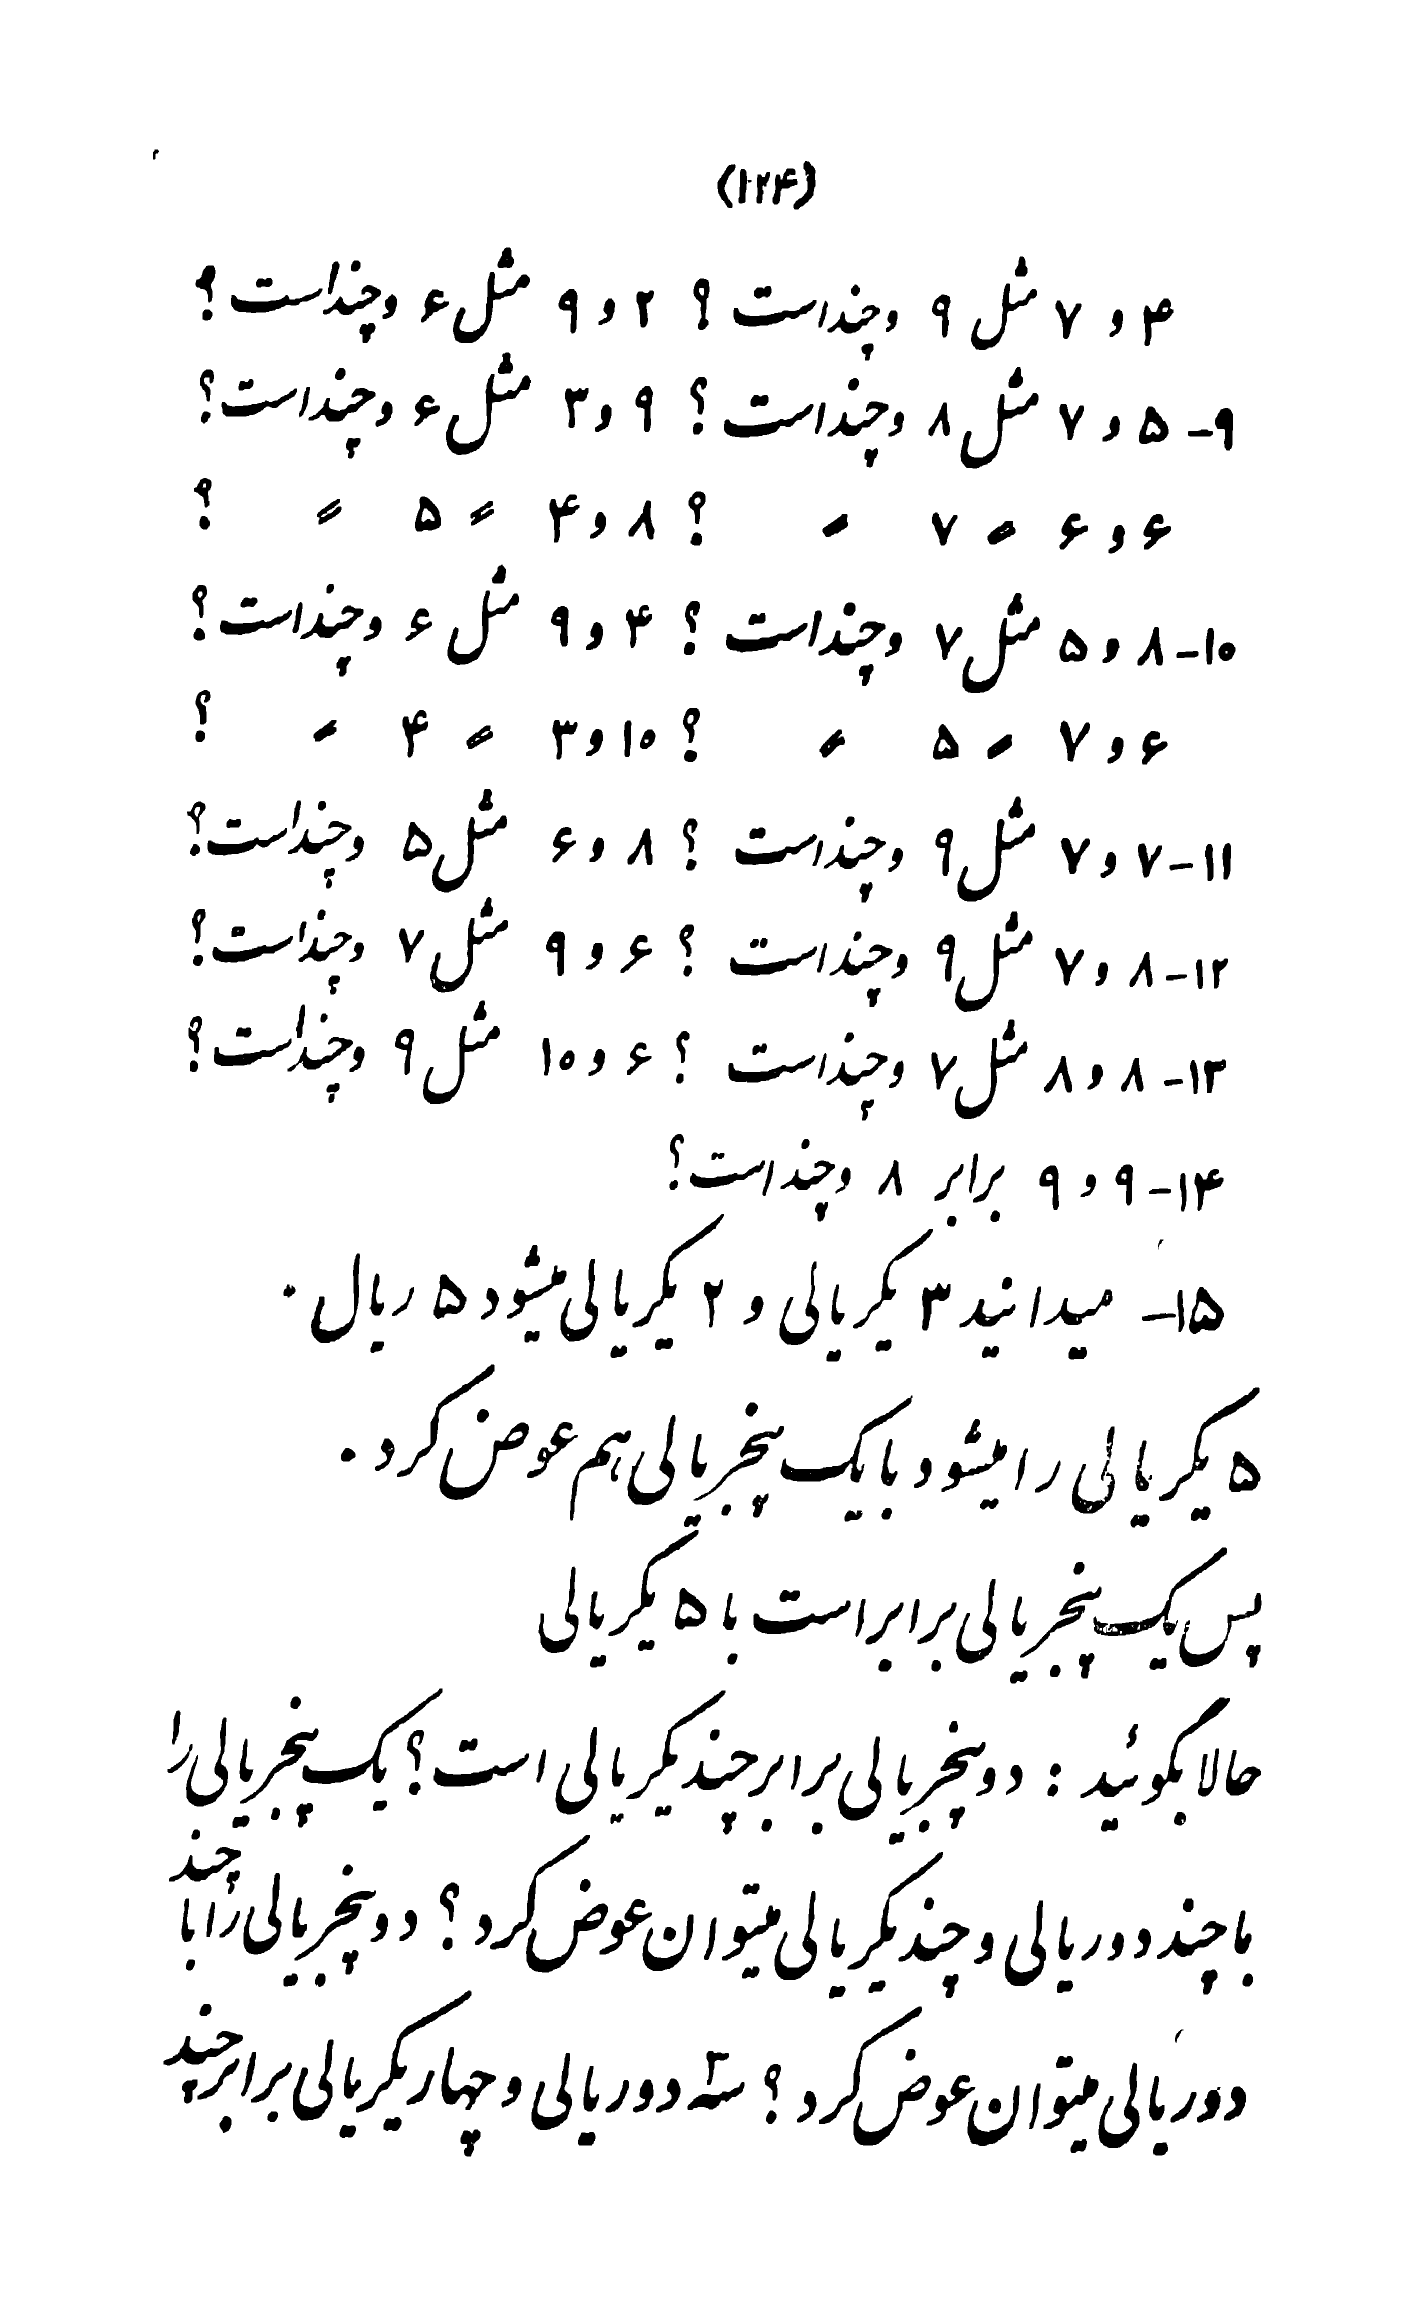 (۱۲۴)
۴ و ۷ مثل ۹ وچنداست ؟ ۲ و ۹ مثل ۶ وچنداست ؟
۹- ۵ و ۷ مثل ۸ وچنداست ؟ ۹ و ۳ مثل ۶ وچنداست ؟
۶ و ۶ 〃 ۷ 〃 ؟ ۸ و ۴ 〃 ۵ 〃 ؟
۱۰- ۸ و ۵ مثل ۷ وچنداست ؟ ۴ و ۹ مثل ۶ وچنداست ؟
۶ و ۷ 〃 ۵ 〃 ؟ ۱۰ و ۳ 〃 ۴ 〃 ؟
۱۱- ۷ و ۷ مثل ۹ وچنداست ؟ ۸ و ۶ مثل ۵ وچنداست ؟
۱۲- ۸ و ۷ مثل ۹ وچنداست ؟ ۶ و ۹ مثل ۷ وچنداست ؟
۱۳- ۸ و ۸ مثل ۷ وچنداست ؟ ۶ و ۱۰ مثل ۹ وچنداست ؟
۱۴- ۹ و ۹ برابر ۸ وچنداست ؟
۱۵- میدانید ۳ یکریالی و ۲ یکریالی میشود ۵ ریال .
۵ یکریالی را میشود با یک پنجریالی هم عوض کرد .
پس یک پنجریالی برابر است با ۵ یکریالی
حالا بگوئید : دو پنجریالی برابر چند یکریالی است ؟ یک پنجریالی را
با چند دوریالی و چند یکریالی میتوان عوض کرد ؟ دو پنجریالی را با چند
دوریالی میتوان عوض کرد ؟ سه ۳ دوریالی و چهار یکریالی برابر چند